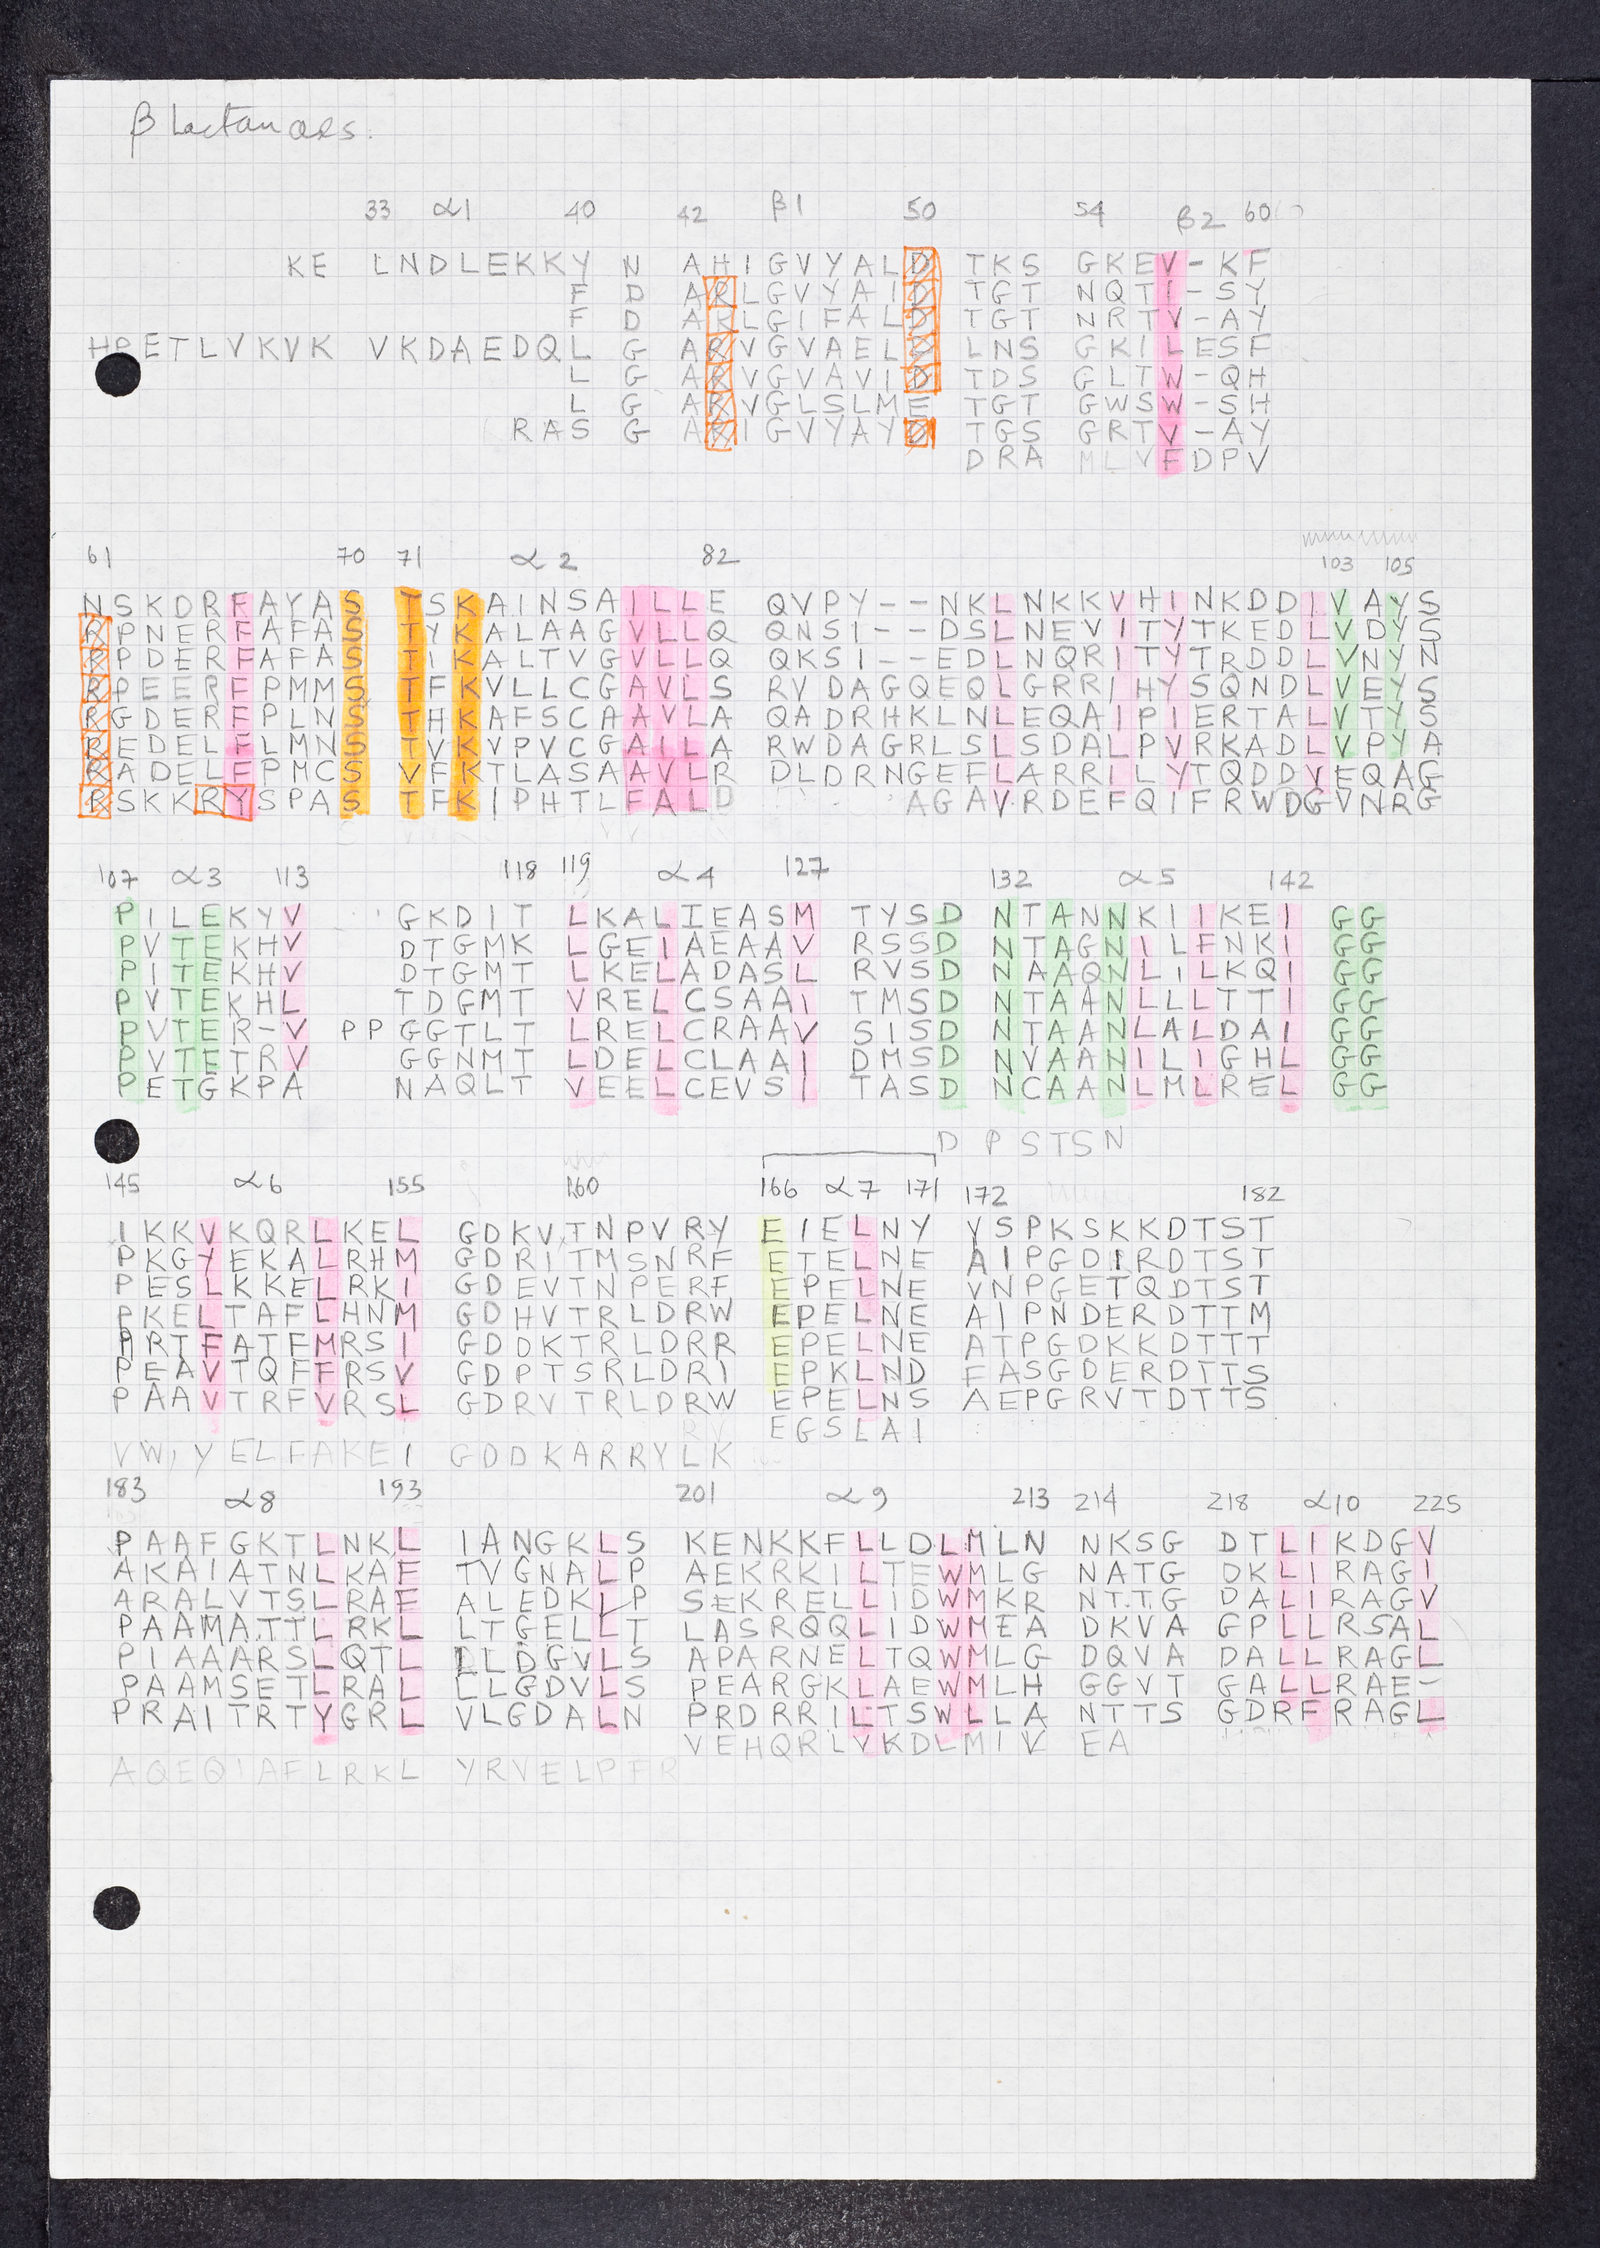 β lactamases.
33 α1 40 42 β1 50 54 β2 60
KE LNDLEKKY N AHIGVYALD TKS GKEV-KF
F D ARLGVYAID TGT NQTI-SY
F D AKLGIFALD TGT NRTV-AY
HPETLVKVK VKDAEDQL G ARVGVAELD LNS GKILESF
L G ARVGVAVID TDS GLTW-QH
L G ARVGLSLME TGT GWSW-SH
RAS G AKIGVYAYD TGS GRTV-AY
DRA MLVFDPV
61 70 71 α2 82 103 105
NSKDRFAYAS TSKAINSAILLE QVPY--NKLNKKVHINKDDIVAYS
RPNERFAFAS TYKALAAGVLLQ QNSI--DSLNEVITYTKEDLVDYS
RPDERFAFAS TIKALTVGVLLQ QKSI--EDLNQRITYTRDDLVNYN
RPEERFPMMS TFKVLLCGAVLS RVDAGQEQLGRRIHYSQNDLVEYS
RGDERFPLNS THKAFSCAAVLA QADRHKLNLEQAIPIERTALVTYS
REDELFLMNS TVKVPVCGAILA RWDAGRLSLSDALPVRKADLVPYA
RADELFPMCS VFKTLASAAVLR DLDRNGEFLARRILYTQDDVEQAG
RSKKRYSPAS TFKIPHTLFALD AGAVRDEFQIFRWDGVNRG
107 α3 113 118 119 α4 127 132 α5 142
PILEKYV GKDIT LKALIEASM TYSD NTANNKIIKEI GG
PVTEKHV DTGMK LGEIAEAAV RSSD NTAGNILFNKI GG
PITEKHV DTGMT LKELADASL RVSD NAAQNLILKQI GG
PVTEKHL TDGMT VRELCSAAI TMSD NTAANLLLTTI GG
PVTER-V PPGGTLT LRELCRAAV SISD NTAANLALDAI GG
PVTETRV GGNMT LDELCLAAI DMSD NVAANILIGHL GG
PETGKPA NAQLT VEELCEVSI TASD NCAANLMLREL GG
D PSTSN
145 α6 155 160 166 α7 171 172 182
IKKVKQRLKEL GDKVTNPVRY EIELNY YSPKSKKDTST
PKGYEKALRHM GDRITMSNRF ETELNE AIPGDIRDTST
PESLKKELRKI GDEVTNPERF EPELNE VNPGETQDTST
PKELTAFLHNM GDHVTRLDRW EPELNE AIPNDERDTTM
PRTFATFMRSI GDDKTRLDRR EPELNE ATPGDKKDTTT
PEAVTQFFRSV GDPTSRLDRI EPKLND FASGDERDTTS
PAAVTRFVRSL GDRVTRLDRW EPELNS AEPGRVTDTTS
RV EGSLAI
VWIYELFAKEI GDDKARRYLK
183 α8 193 201 α9 213 214 218 α10 225
PAAFGKTLNKL IANGKLS KENKKFLLDLMLN NKSG DTLIKDGV
AKAIATNLKAF TVGNALP AEKRKILTEWMLG NATG DKLIRAGI
ARALVTSLRAF ALEDKLP SEKRELLIDWMKR NTTG DALIRAGV
PAAMATTLRKL LTGELLT LASRQQLIDWMEA DKVA GPLLRSAL
PIAAARSLQTL LLDGVLS APARNELTQWMLG DQVA DALLRAGL
PAAMSETLRAL LLGDVLS PEARGKLAEWMLH GGVT GALLRAE-
PRAITRTYGRL VLGDALN PRDRRILTSWLLA NTTS GDRFRAGL
VEHQRLVKDLMIV EA
AQEQIAFLRKL YRVELPFR